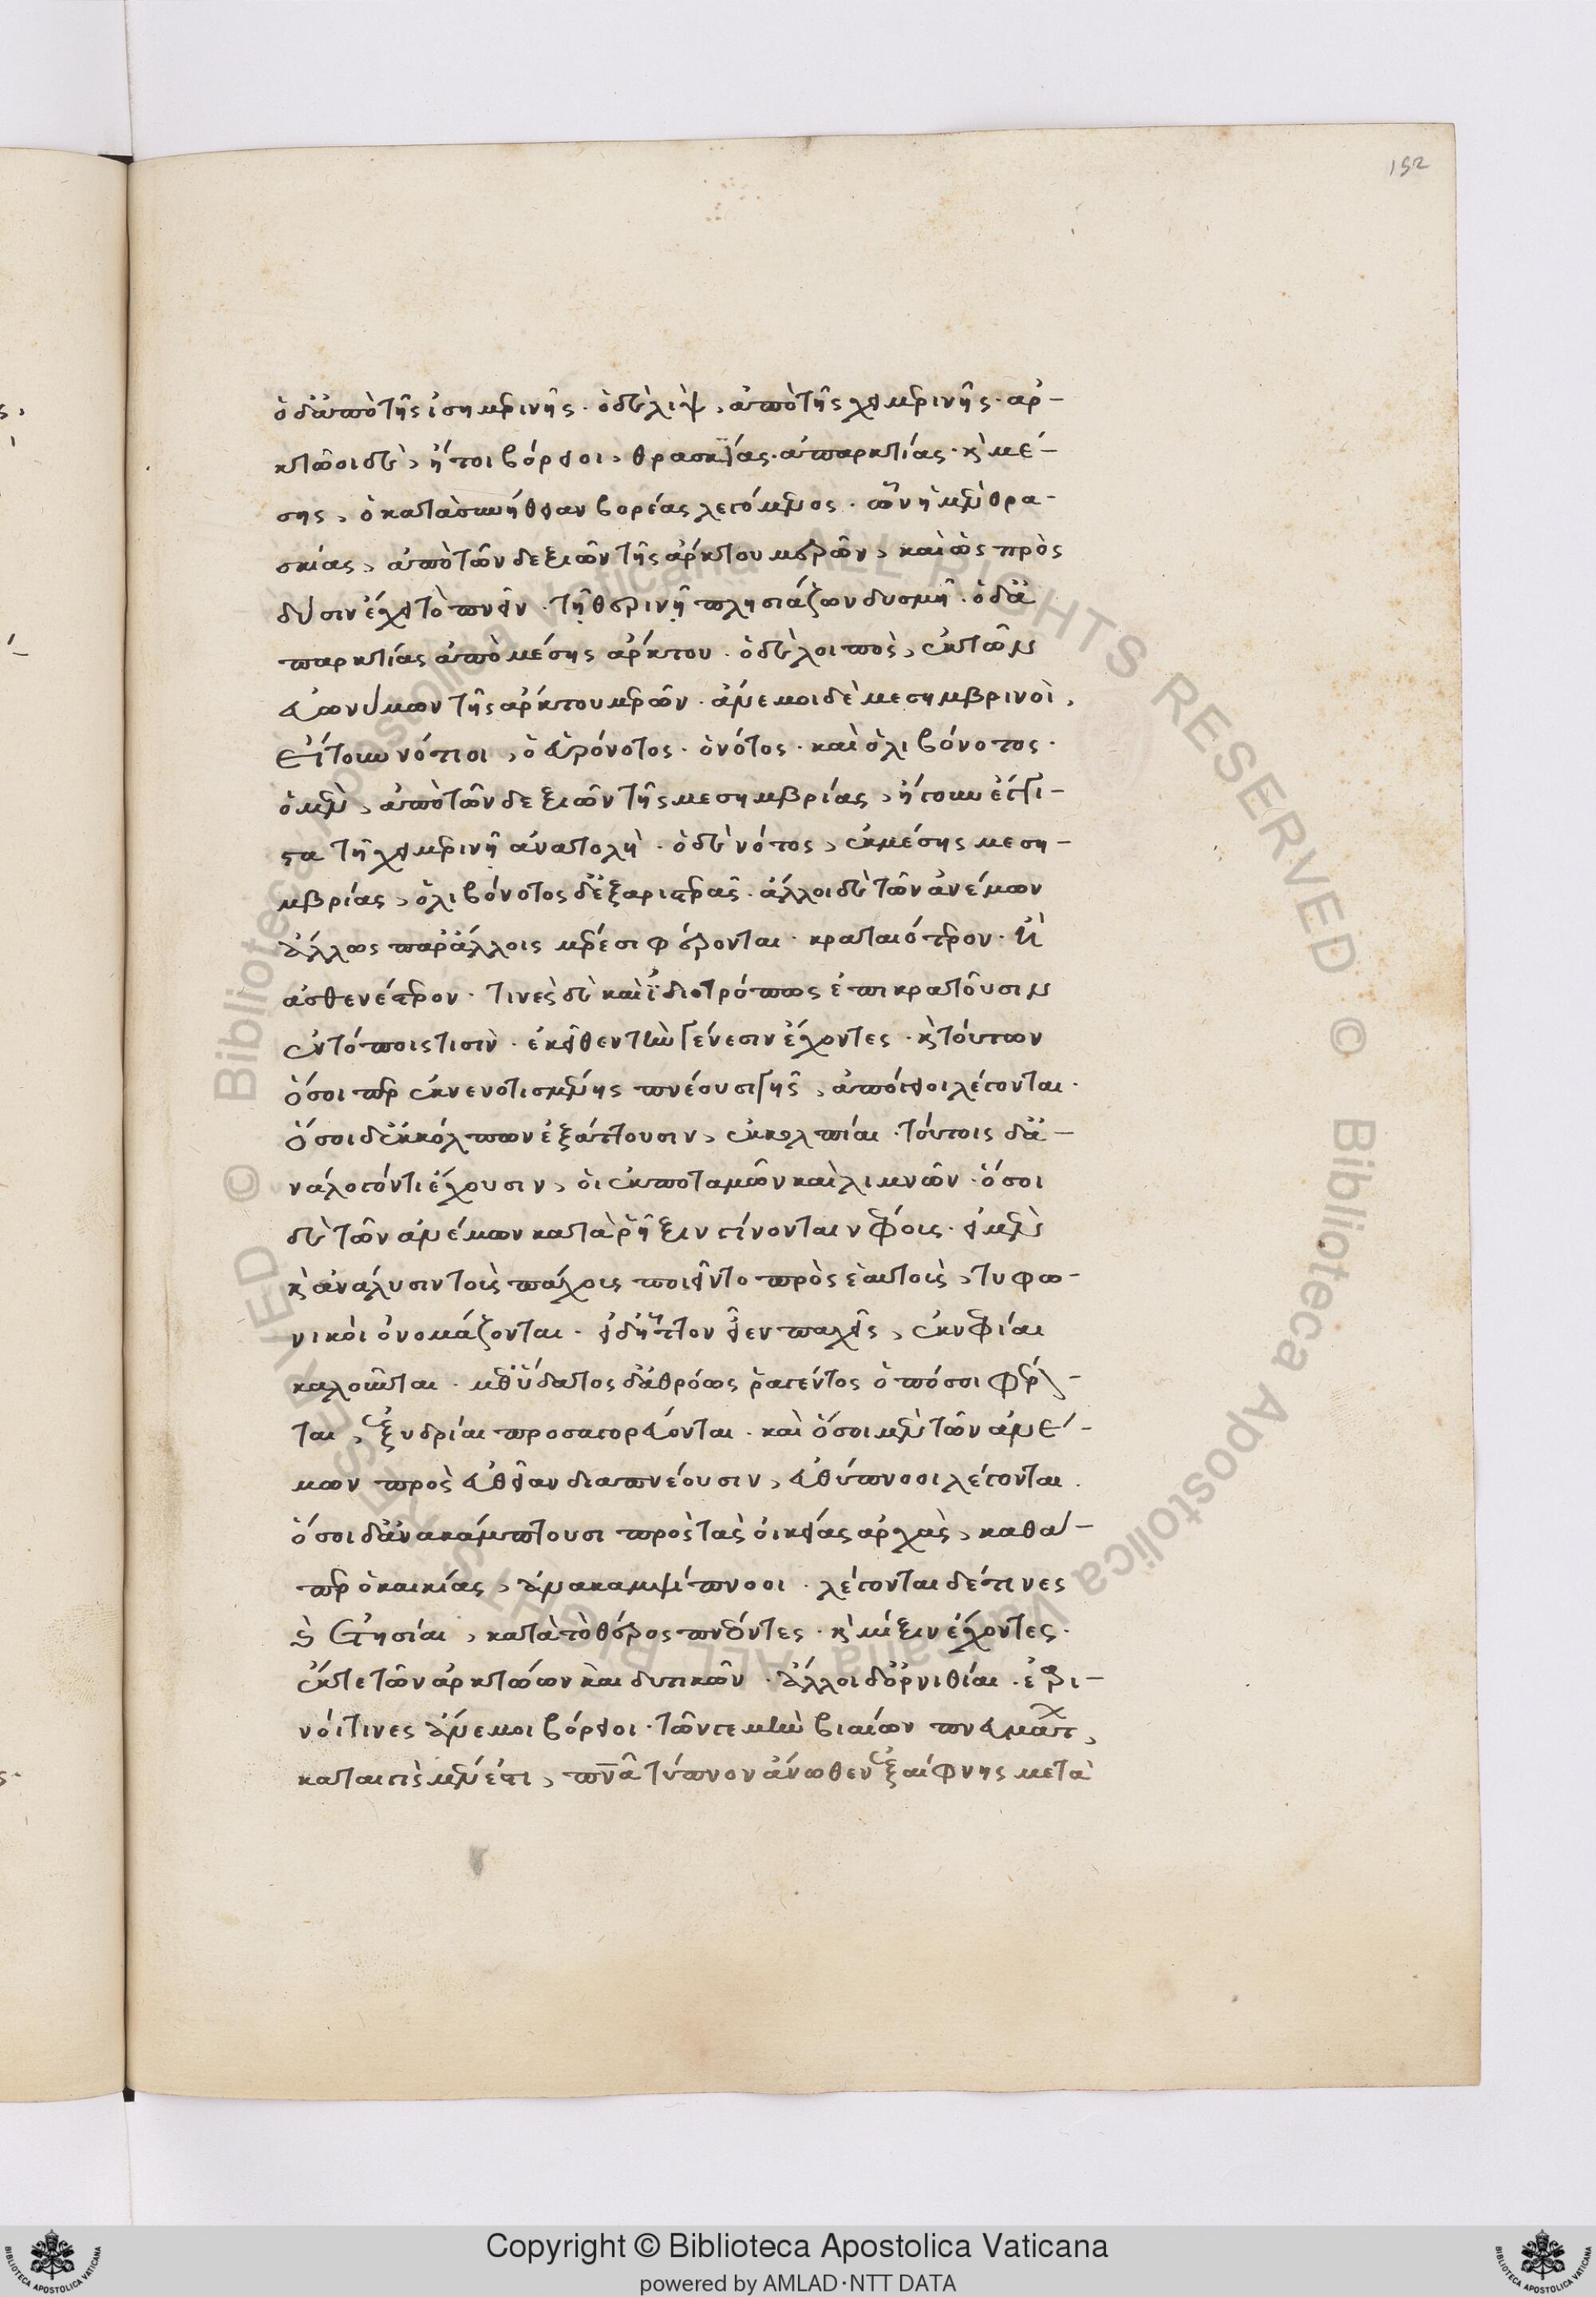 152
ὁ δ' ἀπὸ τῆς ἰσημερινῆς · ὁ δὲ λὶψ, ἀπὸ τῆς χειμερινῆς · ἀρ-
κτῷοι δὲ, ἤτοι βόρειοι, θρασκίας · ἀπαρκτίας · κὶ μέ-
σης, ὁ κατὰ συνήθειαν βορέας λεγόμενος · ὧν ἡ μὲν θρα-
σκίας, ἀπὸ τῶν δεξιῶν τῆς ἄρκτου μερῶν, καὶ ὡς πρὸς
δύσιν ἔχει τὸ πνεῖν · τῇ θερινῇ πλησιάζων δυσμῇ · ὁ δ' ἀ
παρκτίας ἀπὸ μέσης ἄρκτου · ὁ δὲ λοιπὸς, ἐκ τῶν
εὐωνύμων τῆς ἄρκτου μερῶν · ἄνεμοι δὲ μεσημβρινοὶ,
εἴτουν νότιοι, ὁ εὐρόνοτος · ὁ νότος · καὶ ὁ λιβόνοτος ·
ὁ μὲν, ἀπὸ τῶν δεξιῶν τῆς μεσημβρίας, ἤτουν ἔγγι-
στα τῇ χειμερινῇ ἀνατολῇ · ὁ δὲ νότος, ἐκ μέσης μεση-
μβρίας, ὁ λιβόνοτος δ' ἐξ ἀριστερᾶς · ἄλλοι δὲ τῶν ἀνέμων
ἄλλως παρ' ἄλλοις μέρεσι φέρονται · κραταιότερον · ἢ
ἀσθενέτερον · τινὲς δὲ καὶ ἰδιοτρόπως ἐπικρατοῦσιν
ἐν τόποις τισὶν · ἐκεῖθεν τὴν γένεσιν ἔχοντες · κὶ τούτων
ὅσοι περ ἐκ νενοτισμένης πνέουσι γῆς, ἀπόγειοι λέγονται ·
ὅσοι δ' ἐκ κόλπων ἐξάττουσιν, ἐκκολπίαι · τούτοις δ' ἀ-
νάλογόν τι ἔχουσιν, οἱ ἐκ ποταμῶν καὶ λιμνῶν · ὅσοι
δὲ τῶν ἀνέμων κατὰ ῥῆξιν γίνονται νέφους · εἰ μὲν
κὶ ἀνάλυσιν τοῦ πάχους ποιοῖντο πρὸς ἑαυτοὺς, τυφω-
νικοὶ ὀνομάζονται · εἰ δ' ἧττον εἶεν παχεῖς, ἐκνεφίαι
καλοῦνται · μεθ' ὕδατος δ' ἀθρόως ῥαγέντος ὁπόσοι φέρον-
ται, ἐξυδρίαι προσαγορεύονται · καὶ ὅσοι μὲν τῶν ἀνέ-
μων πρὸς εὐθεῖαν διαπνέουσιν, εὐθύπνοοι λέγονται ·
ὅσοι δ' ἀνακάμπτουσι πρὸς τὰς οἰκείας ἀρχὰς, καθά-
περ ὁ καικίας, ἀνακαμψίπνοοι · λέγονται δέ τινες
κὶ ἐτησίαι, κατὰ τὸ θέρος πνέοντες · κὶ μίξιν ἔχοντες ·
ἔκ τε τῶν ἀρκτῴων καὶ δυτικῶν · ἄλλοι δ' ὀρνιθίαι · ἐαρι-
νοί τινες ἄνεμοι βόρειοι · τῶν γε μὴν βιαίων πνευμάτων,
καταιγὶς μέν ἐστι, πνεῦμα τύπτον ἄνωθεν ἐξαίφνης μετὰ
Copyright © Biblioteca Apostolica Vaticana
powered by AMLAD·NTT DATA